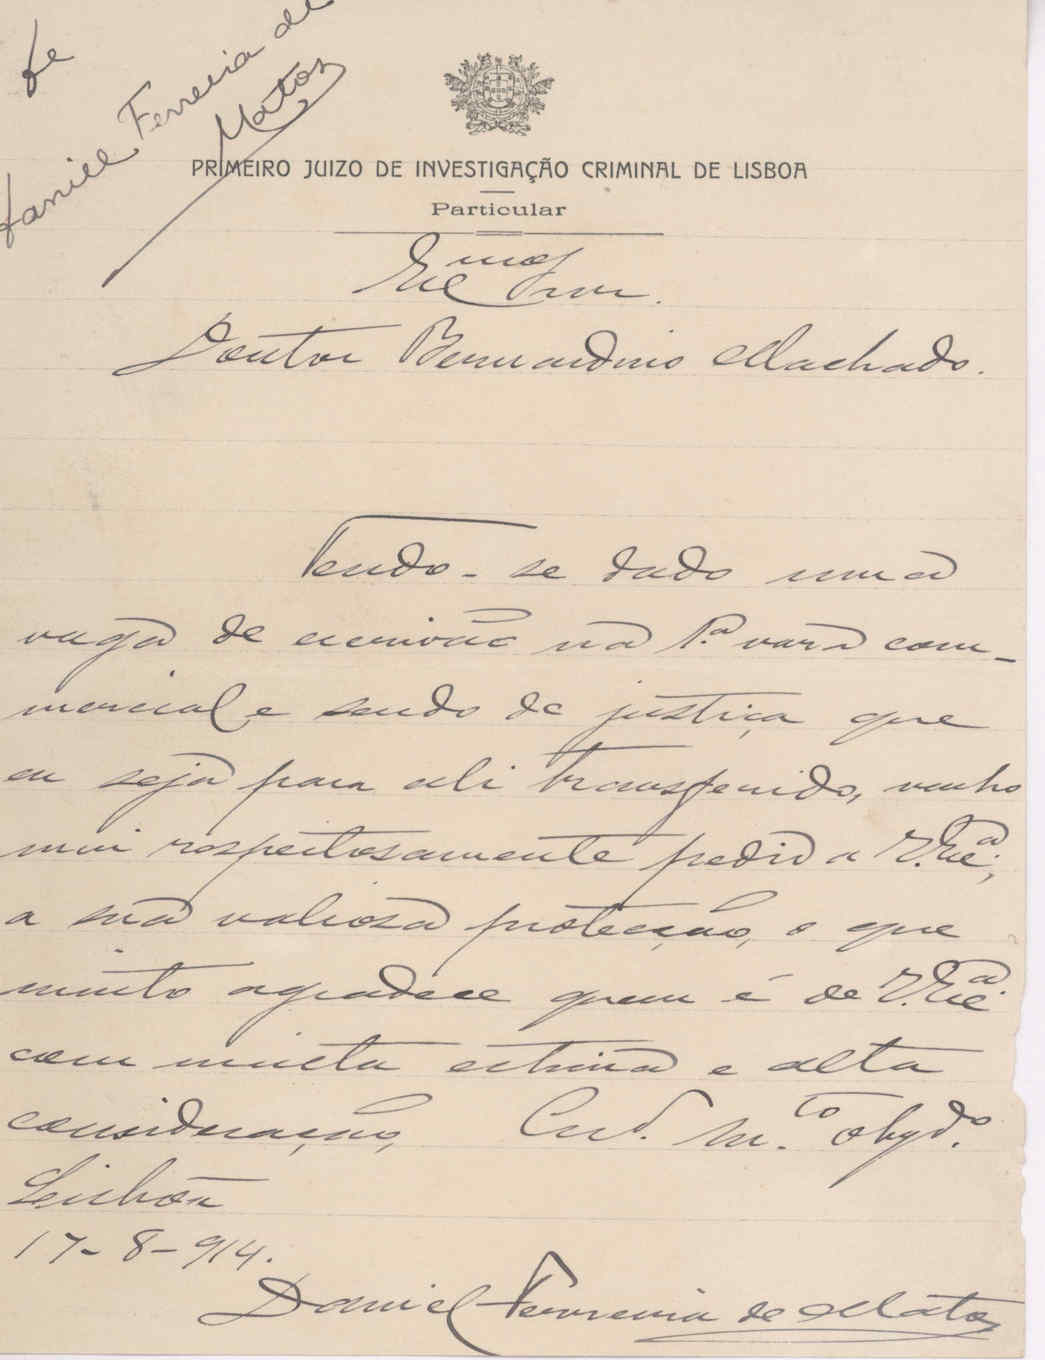 fe
Daniel Ferreira de
Matos
PRIMEIRO JUIZO DE INVESTIGAÇÃO CRIMINAL DE LISBOA
Particular
Exmo Snr.
Doutor Bernardino Machado.
Tendo-se dado uma
vaga de escrivão na 1.ª vara com-
mercial e sendo de justiça que
eu seja para ali transferido, venho
mui respeitosamente pedir a V. Exª.,
a sua valiosa protecção, o que
muito agradece quem é de V. Exª.
com muita estima e alta
consideração, Cr.do m.to obgd.º
Lisboa
17-8-914.
Daniel Ferreira de Matos